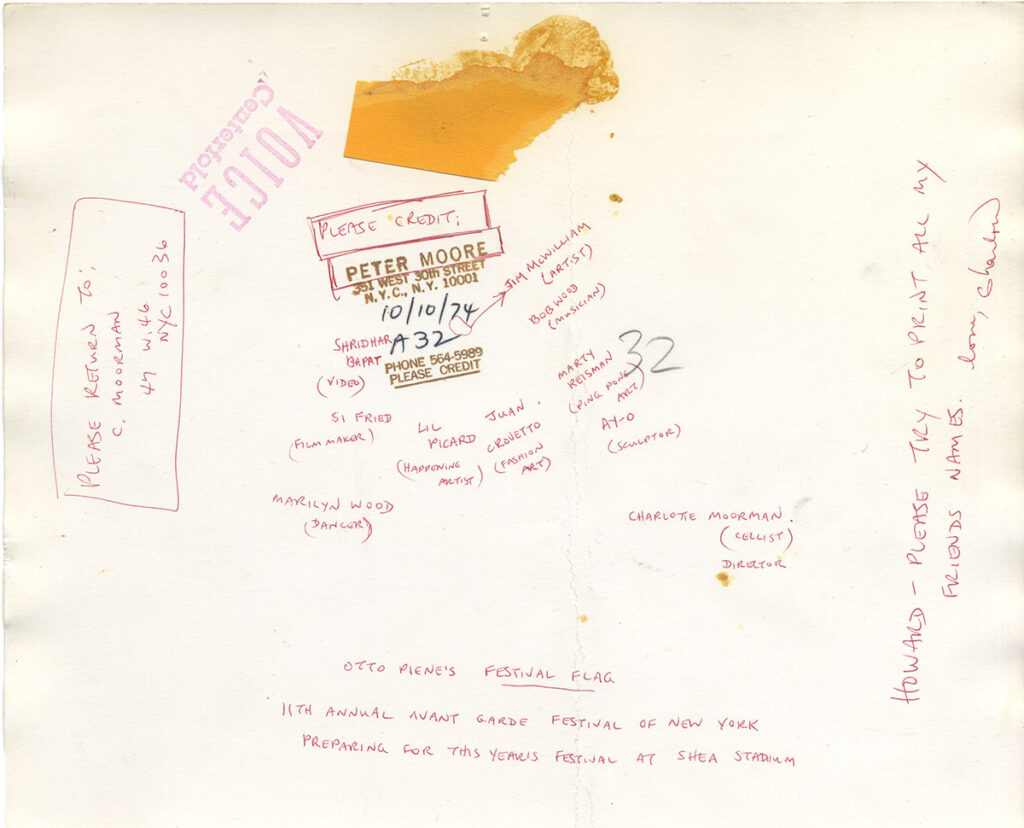 VOICE
Centerfold
PLEASE RETURN TO:
C. MOORMAN
47 W. 46
NYC 10036
PLEASE CREDIT;
PETER MOORE
351 WEST 30th STREET
N.Y.C., N.Y. 10001
10/10/74
A 32
PHONE 564-5989
PLEASE CREDIT
JIM McWILLIAM
(ARTIST)
BOB WOOD
(MUSICIAN)
SHRIDHAR
BAPAT
(VIDEO)
32
MARTY
REISMAN
(PING PONG
ART)
SI FRIED
(FILM MAKER)
LIL
PICARD
(HAPPENING
ARTIST)
JUAN
CROVETTO
(FASHION
ART)
AY-O
(SCULPTOR)
MARILYN WOOD
(DANCER)
CHARLOTTE MOORMAN.
(CELLIST)
DIRECTOR
OTTO PIENE'S FESTIVAL FLAG
11TH ANNUAL AVANT GARDE FESTIVAL OF NEW YORK
PREPARING FOR THIS YEARS FESTIVAL AT SHEA STADIUM
HOWARD - PLEASE TRY TO PRINT ALL MY
FRIENDS NAMES. love, Charlotte